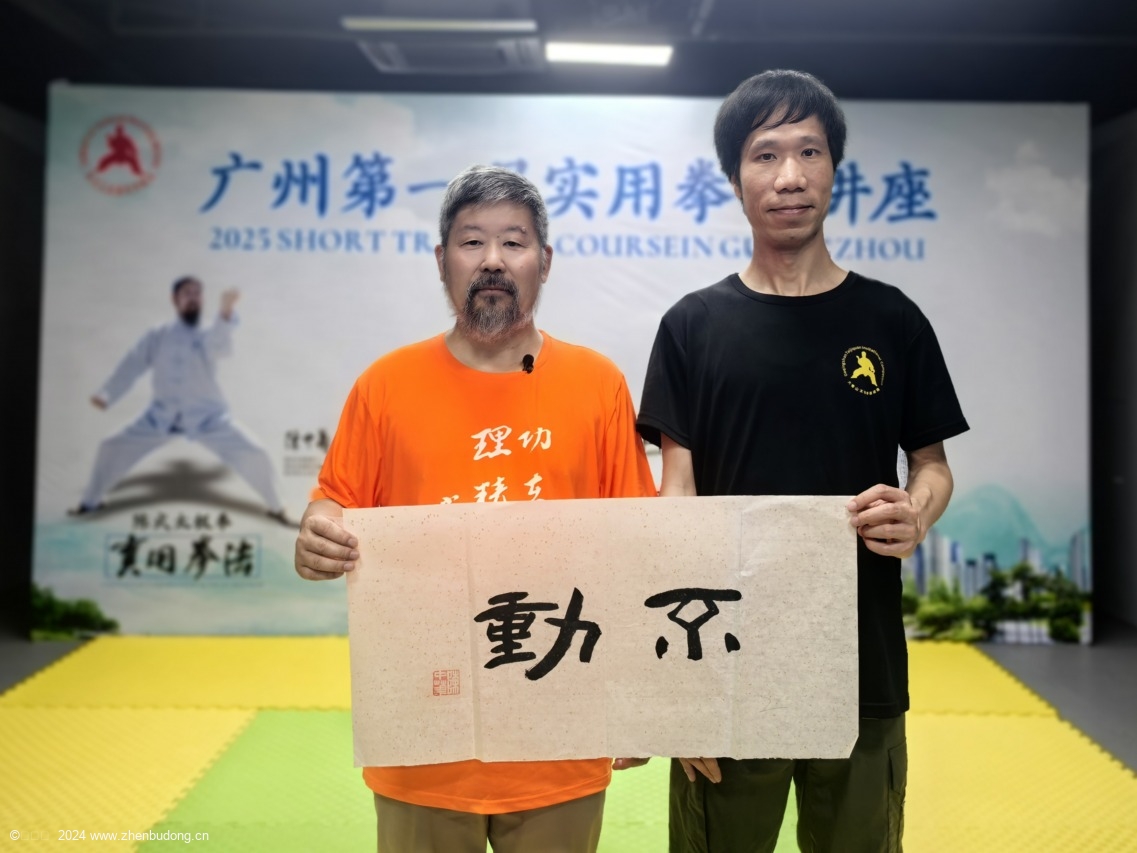 广州第一届实用拳讲座
2025 SHORT TR COURSEIN GU GZHOU
陈式太极拳
實用拳法
理功
不動
© 2024 www.zhenbudong.cn